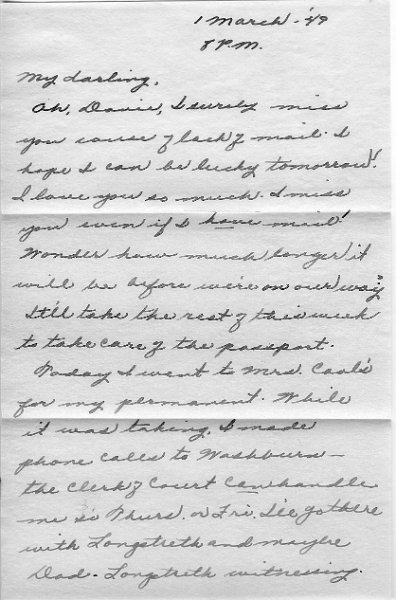 1 March - '49
8 P.M.
My darling,
Oh, Davie, I surely miss
you cause of lack of mail. I
hope I can be lucky tomorrow!!
I love you so much. I miss
you even if I have mail!
Wonder how much longer it
will be before we're on our way?
It'll take the rest of this week
to take care of the passport.
Today I went to Mrs. Cool's
for my permanent. While
it was taking, I made
phone calls to Washburn -
the Clerk of Court can handle
me so Thurs. or Fri. I'll go there
with Longstreth and maybe
Dad - Longstreth witnessing.